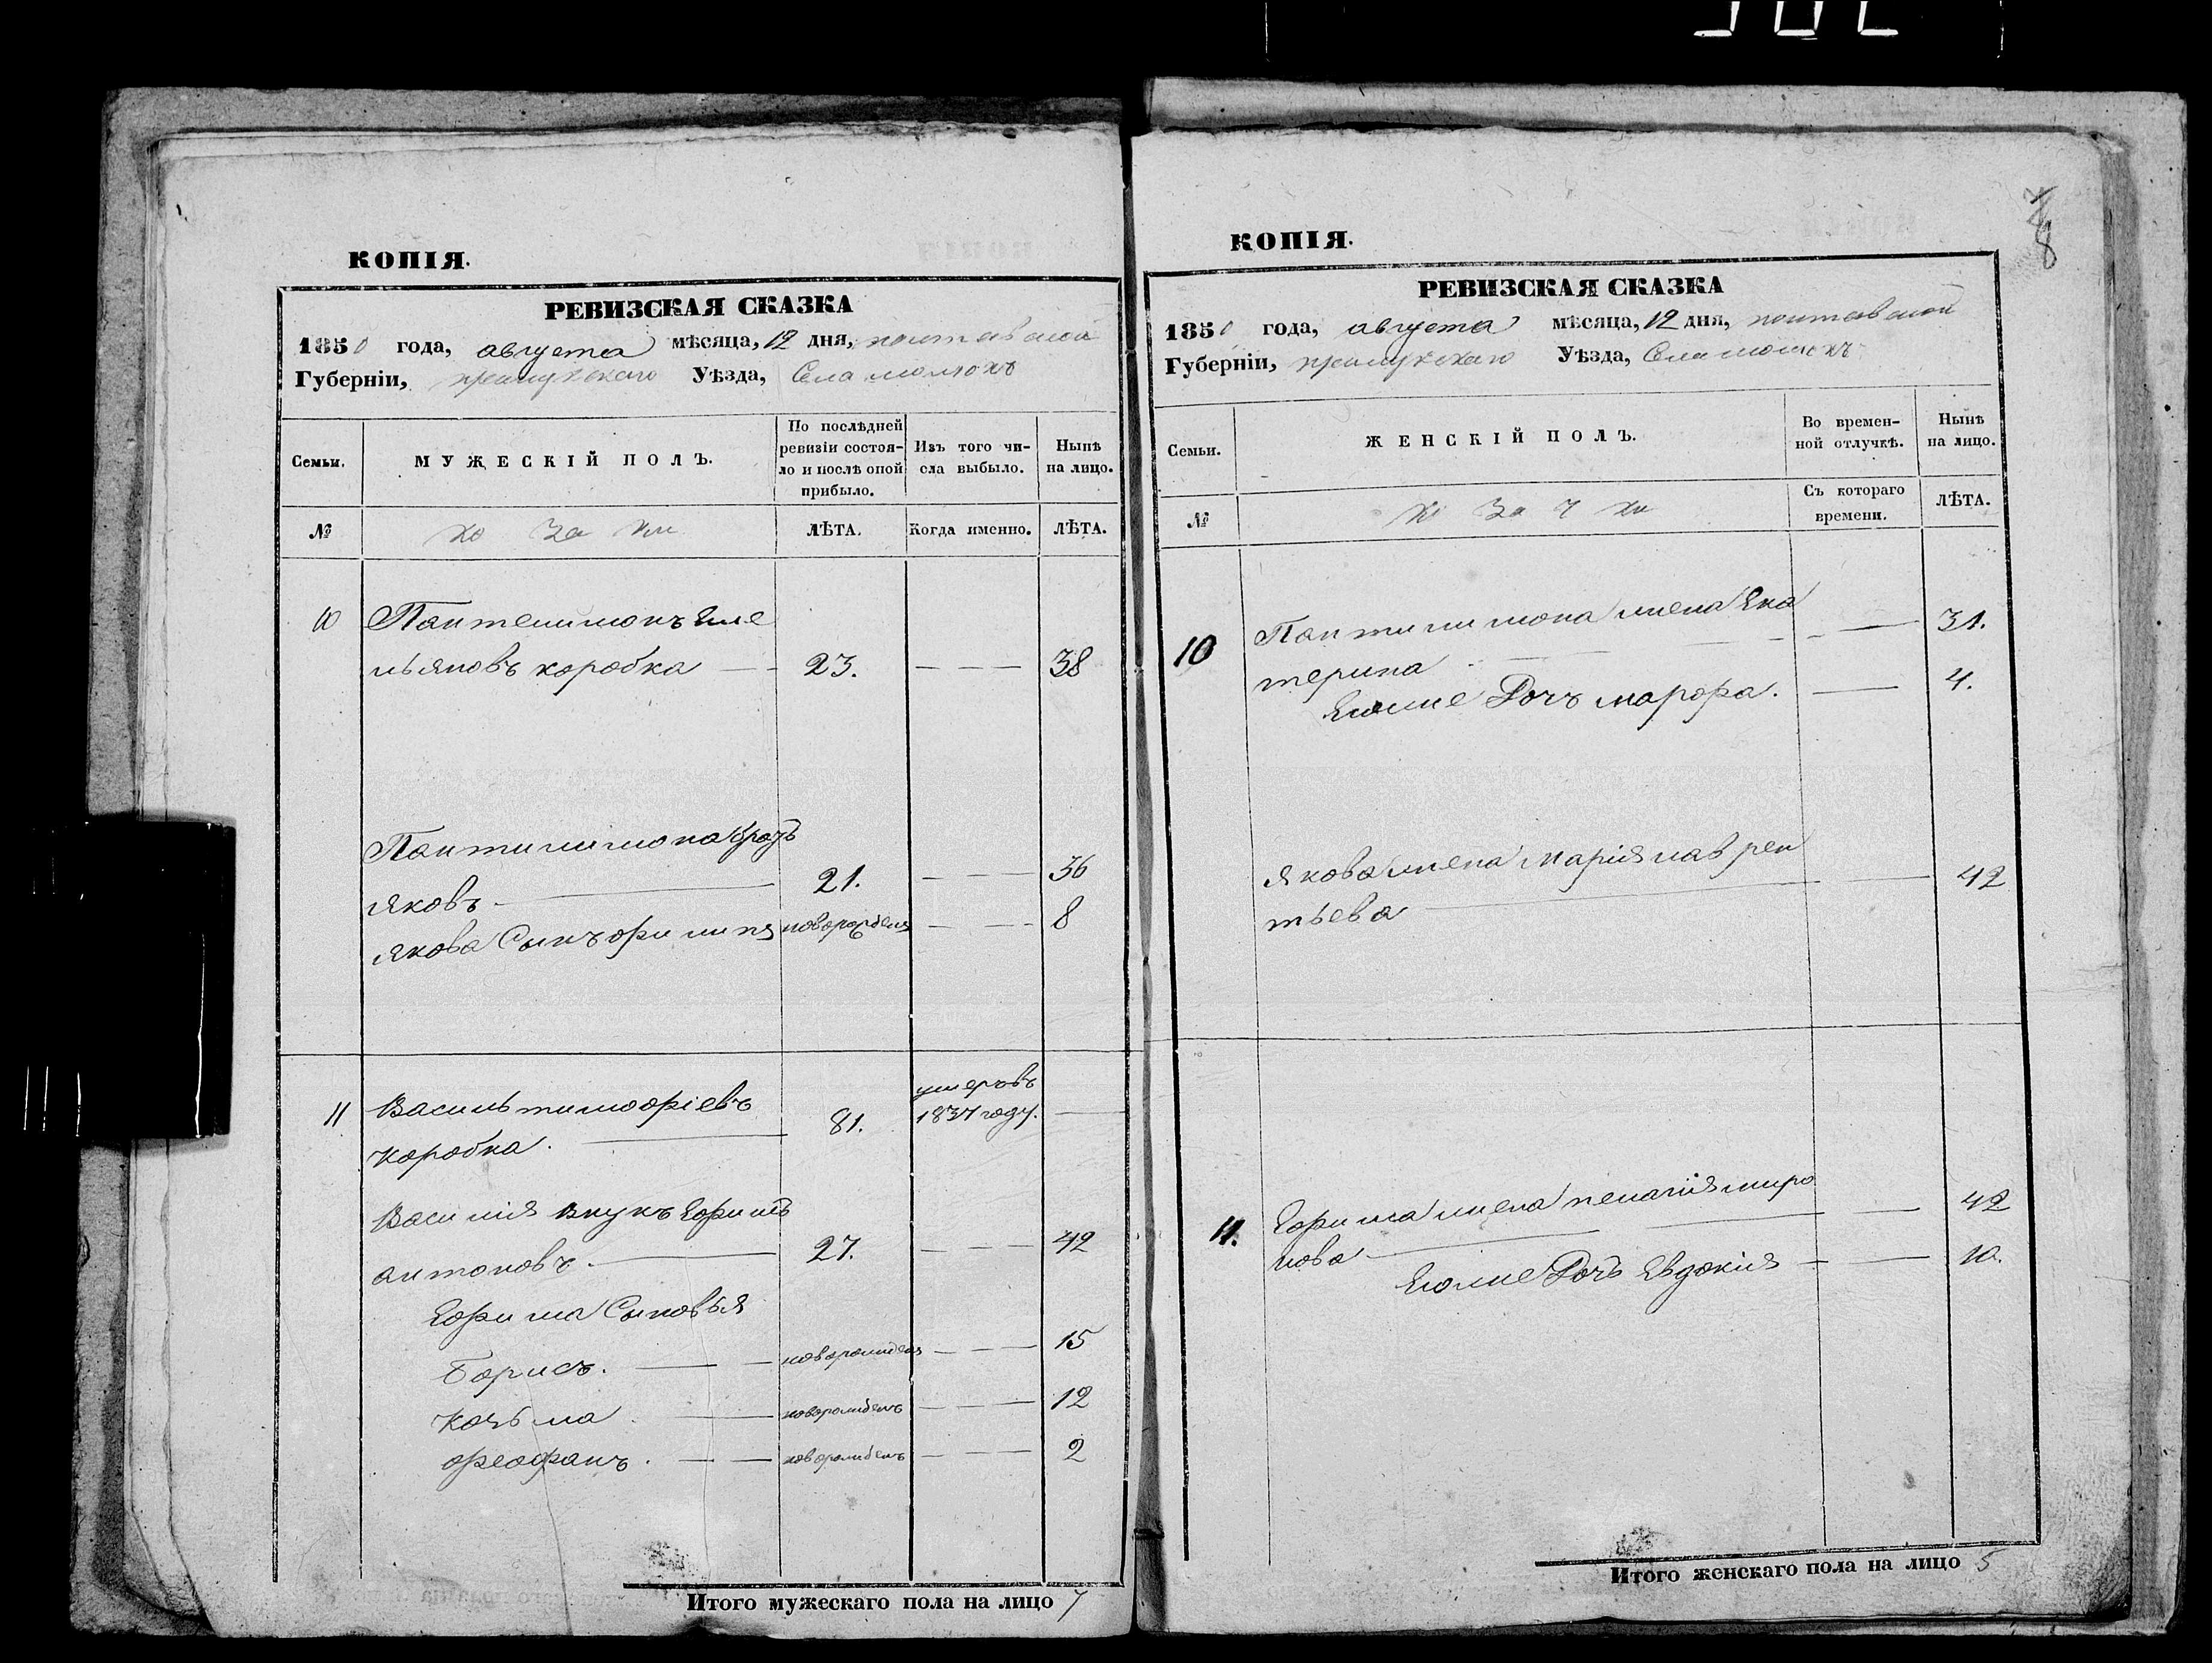 КОПІЯ.
РЕВИЗСКАЯ СКАЗКА
1850 года, августа мѣсяца, 12 дня, полтавской
Губерніи, прилукскаго Уѣзда, Села
Семьи.
МУЖЕСКІЙ ПОЛЪ.
По послѣдней ревизіи состоя-
ло и послѣ оной прибыло.
Изъ того чи-
сла выбыло.
Нынѣ
на лицо.
№
ко за ки
ЛѢТА.
Когда именно.
ЛѢТА.
10 Пантелимонъ Еме
льяновъ коробка 23. 38
Пантилимона братъ
яковъ 21. 36
якова Сынъ филипъ 8
11 Василь тимофіевъ
коробка. 81. умеръ въ
1837 году.
Василія внукъ Ефимъ
антоновъ. 27. 42
Ефима Сыновья
Борисъ. новорожден 15
Козьма новорожденъ 12
феофанъ. новорожденъ 2
Итого мужескаго пола на лицо 7
КОПІЯ.
8
РЕВИЗСКАЯ СКАЗКА
1850 года, августа мѣсяца, 12 дня, полтавской
Губерніи, прилукскаго Уѣзда, Села
Семьи.
ЖЕНСКІЙ ПОЛЪ.
Во времен-
ной отлучкѣ.
Нынѣ
на лицо.
№
Съ котораго
времени.
ЛѢТА.
10 Пантилимона жена Ека
терина 31.
Егоже Дочъ марфа. 4.
якова жена Марія лаврен
тьева 42
11. Ефима жена пелагія миро
нова 42
Егоже Дочъ Евдокія 10.
Итого женскаго пола на лицо 5